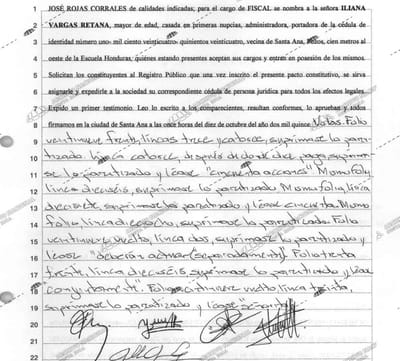 1 JOSÉ ROJAS CORRALES de calidades indicadas; para el cargo de FISCAL se nombra a la señora ILIANA
2 VARGAS RETANA, mayor de edad, casada en primeras nupcias, administradora, portadora de la cédula
3 de identidad número uno- mil ciento veinticuatro- quinientos veinticuatro, vecina de Santa Ana, cien metros al
4 oeste de la Escuela Honduras, quienes estando presentes aceptan sus cargos y entran en posesión de los mismos.
5 Solicitan los constituyentes al Registro Público que una vez inscrito el presente pacto constitutivo, se sirva
6 asignarle y expedirle a la sociedad su correspondiente cédula de persona jurídica para todos los efectos legales
7 Expido un primer testimonio. Leo lo escrito a los comparecientes, resultan conformes, lo aprueban y todos
8 firmamos en la ciudad de Santa Ana a las once horas del diez de octubre del año dos mil quince Notas. Folio
9 veintinueve frente, líneas trece y catorce, suprímase lo paren
10 tizado. línea catorce, después de donde dice para suprimir
11 se lo parentizado y léase "cincuenta acciones". Mismo folio
12 línea dieciséis, suprímase lo parentizado. Mismo folio, línea
13 diecisiete, suprímase lo parentizado y léase cincuenta. Mismo
14 folio, línea dieciocho, suprímase lo parentizado. Folio
15 veintinueve vuelto, línea dos, suprímase lo parentizado y
16 léase "deberán actuar separadamente". Folio treinta
17 frente, línea dieciséis suprímase lo parentizado y léase
18 conjuntamente". Folio veintinueve vuelto línea treinta,
19 suprímase lo parentizado y léase
20
21
22